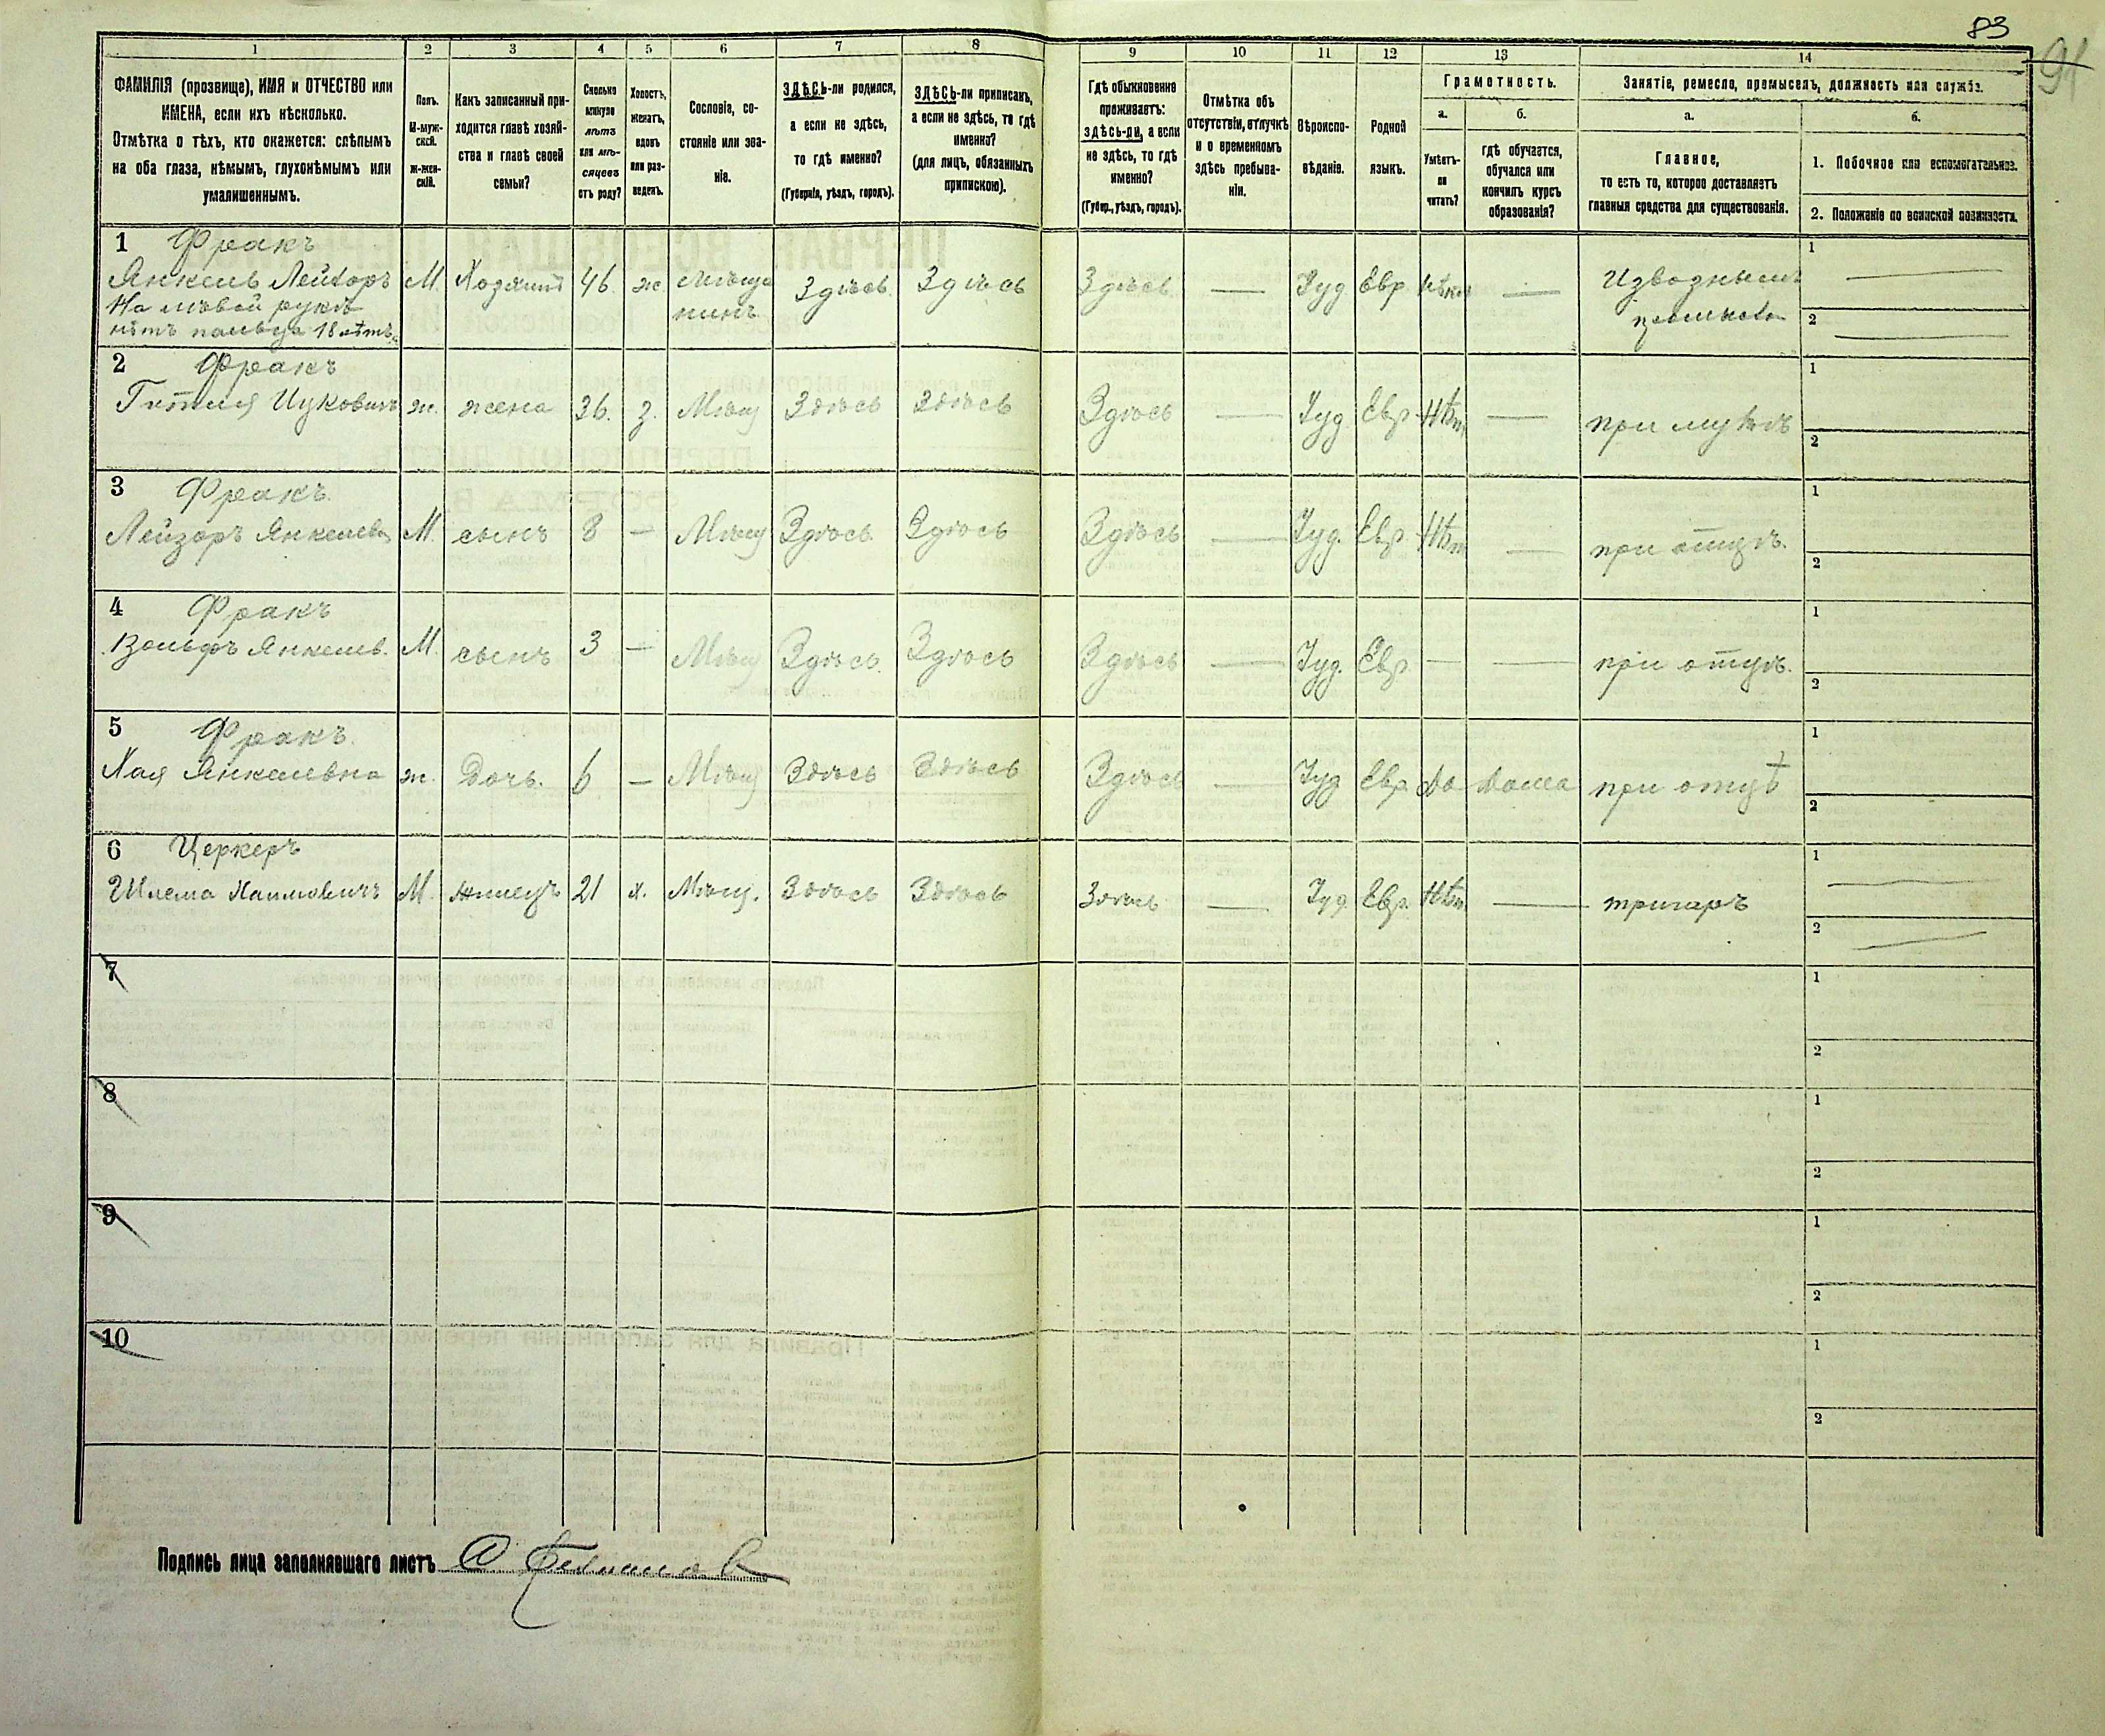 83
91
1 2 3 4 5 6 7 8 9 10 11 12 13 14
ФАМИЛІЯ (прозвище), ИМЯ и ОТЧЕСТВО или
ИМЕНА, если ихъ нѣсколько.
Отмѣтка о тѣхъ, кто окажется: слѣпымъ
на оба глаза, нѣмымъ, глухонѣмымъ или
умалишеннымъ.
Полъ.
М-муж-
ской.
ж-жен-
скій.
Какъ записанный при-
ходится главѣ хозяй-
ства и главѣ своей
семьи?
Сколько
минуло
лѣтъ
или мѣ-
сяцевъ
отъ роду?
Холостъ,
женатъ,
вдовъ
или раз-
веденъ.
Сословіе, со-
стояніе или зва-
ніе.
ЗДѢСЬ-ли родился,
а если не здѣсь,
то гдѣ именно?
(Губернія, уѣздъ, городъ).
ЗДѢСЬ-ли приписанъ,
а если не здѣсь, то гдѣ
именно?
(для лицъ, обязанныхъ
припискою).
Гдѣ обыкновенно
проживаетъ:
здѣсь-ли, а если
не здѣсь, то гдѣ
именно?
(Губер., уѣздъ, городъ).
Отмѣтка объ
отсутствіи, отлучкѣ
и о временномъ
здѣсь пребыва-
ніи.
Вѣроиспо-
вѣданіе.
Родной
языкъ.
Грамотность.
а. б.
Умѣетъ-
ли
читать?
гдѣ обучается,
обучался или
кончилъ курсъ
образованія?
Занятіе, ремесло, промыселъ, должность или служба.
а. б.
Главное,
то есть то, которое доставляетъ
главныя средства для существованія.
1. Побочное или вспомогательное.
2. Положеніе по воинской повинности.
1 Фракъ
Янкель Лейзоръ М. Хозяинъ 46 ж Мѣща Здѣсь Здѣсь Здѣсь — Іуд Евр — Извознымъ 1 —
нинъ
На лѣвой рукѣ
нѣтъ пальца 18 лѣтъ 2 —
2 Фракъ 1
Ицковичъ ж. жена 36. з. Мѣщ Здѣсь Здѣсь Здѣсь — Іуд Евр Нѣт — при мужѣ
2
3 Фракъ. 1
Лейзоръ Янкелев М. сынъ 8 — Мѣщ Здѣсь Здѣсь Здѣсь — Іуд. Евр Нѣт — при отцѣ.
2
4 Фракъ 1
Вольфъ Янкелев. М. сынъ 3 — Мѣщ Здѣсь. Здѣсь Здѣсь — Іуд. Евр — — при отцѣ.
2
5 Фракъ. 1
Хая Янкелевна ж. Дочь. 6 — Мѣщ Здѣсь Здѣсь Здѣсь — Іуд Евр. да дома при отцѣ
2
6 Церкеръ 1 —
Шлема Хаимовичъ М. жилецъ 21 х. Мѣщ. Здѣсь Здѣсь Здѣсь — Іуд. Евр. Нѣт. —
2 —
7 1
2
8 1
2
9 1
2
10 1
2
Подпись лица заполнявшаго листъ